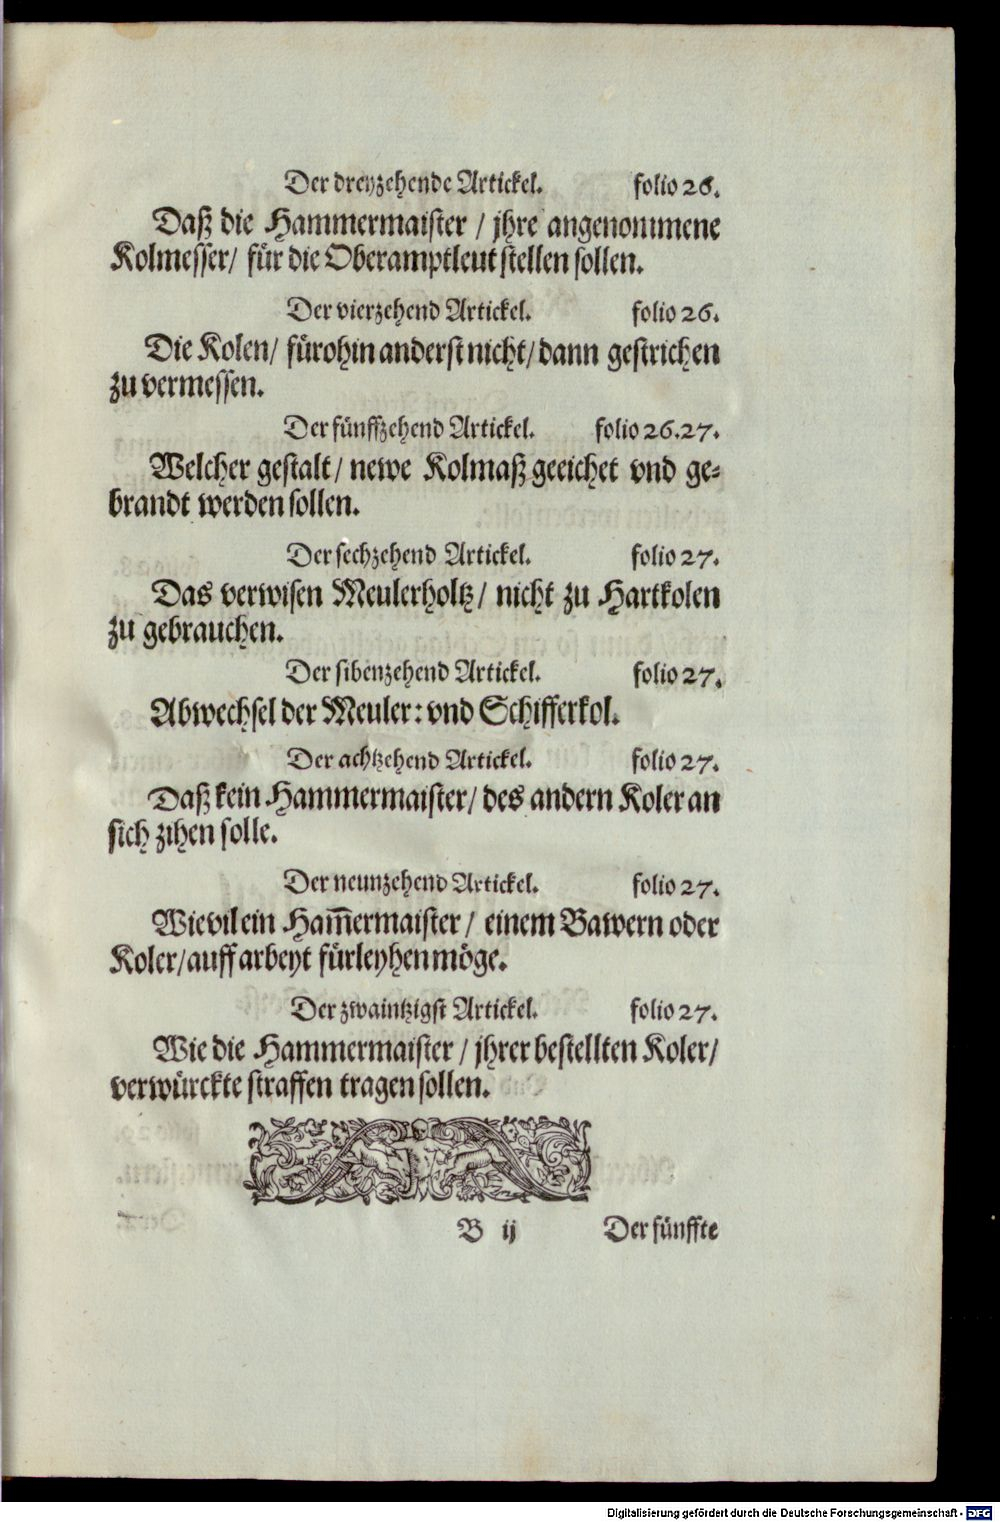 Der dreyzehende Artickel. folio 26.
Daß die Hammermaister / jhre angenommene
Kolmesser / für die Oberamptleut stellen sollen.
Der vierzehend Artickel. folio 26.
Die Kolen / fürohin anderst nicht / dann gestrichen
zu vermessen.
Der fünffzehend Artickel. folio 26.27.
Welcher gestalt / newe Kolmaß geeichet vnd ge-
brandt werden sollen.
Der sechzehend Artickel. folio 27.
Das verwisen Meulerholtz / nicht zu Hartkolen
zu gebrauchen.
Der sibenzehend Artickel. folio 27.
Abwechsel der Meuler: vnd Schifferkol.
Der achtzehend Artickel. folio 27.
Daß kein Hammermaister / des andern Koler an
sich zihen solle.
Der neunzehend Artickel. folio 27.
Wievil ein Ham̅ermaister / einem Bawern oder
Koler / auff arbeyt fürleyhen möge.
Der zwaintzigst Artickel. folio 27.
Wie die Hammermaister / jhrer bestellten Koler /
verwürckte straffen tragen sollen.
B ij Der fünffte
Digitalisierung gefördert durch die Deutsche Forschungsgemeinschaft - DFG